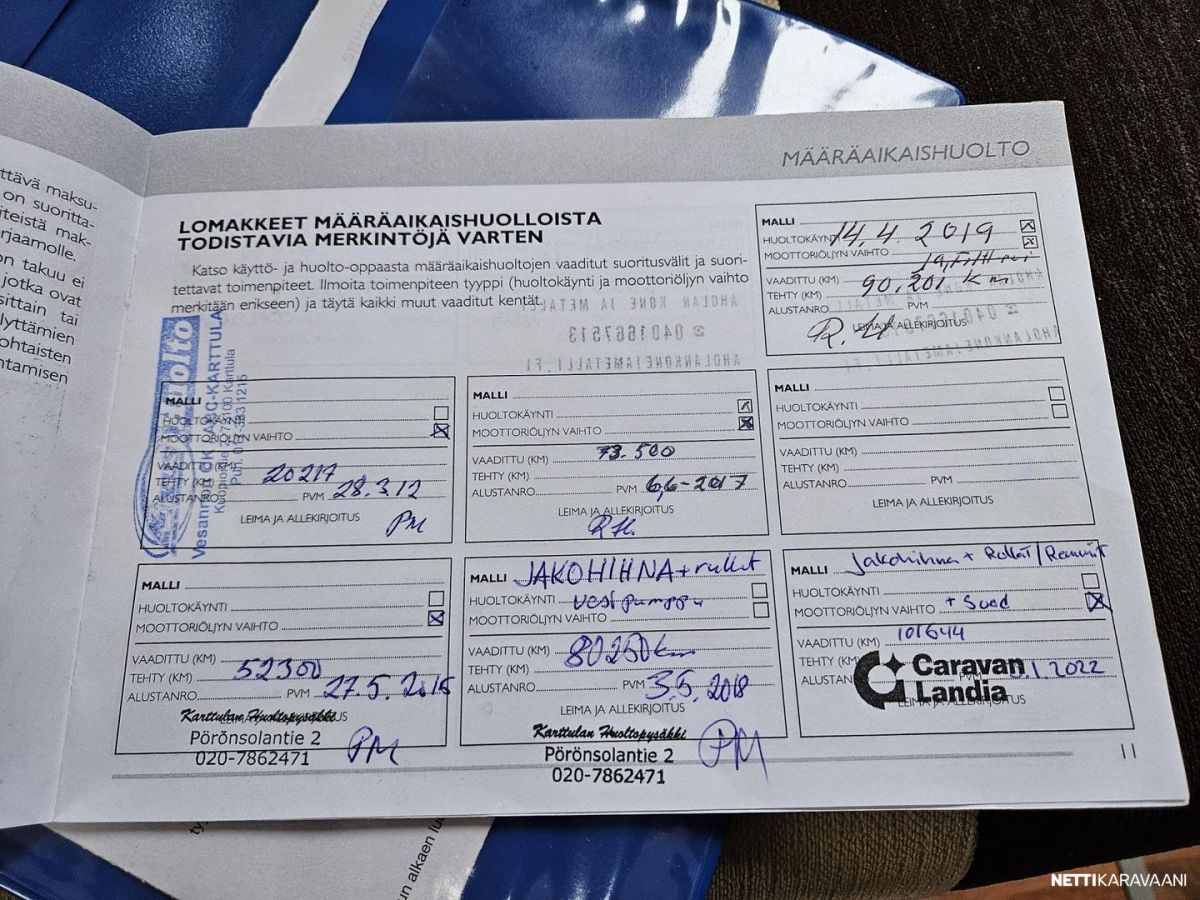 ttävä maksu-
on suoritta-
iteistä mak-
rjaamolle.
on takuu ei
jotka ovat
sittain tai
lyttämien
ohtaisten
ntamisen
MÄÄRÄAIKAISHUOLTO
LOMAKKEET MÄÄRÄAIKAISHUOLLOISTA
TODISTAVIA MERKINTÖJÄ VARTEN
Katso käyttö- ja huolto-oppaasta määräaikaishuoltojen vaaditut suoritusvälit ja suori-
tettavat toimenpiteet. Ilmoita toimenpiteen tyyppi (huoltokäynti ja moottoriöljyn vaihto
merkitään erikseen) ja täytä kaikki muut vaaditut kentät.
AHOLAN KONE JA METAL
0401667513
AHOLANKONEJAMETALLI.FI
MALLI
HUOLTOKÄYNTI 14.4. 2019
MOOTTORIÖLJYN VAIHTO
VAADITTU (KM)
TEHTY (KM) 90,201 km
ALUSTANRO PVM
LEIMA JA ALLEKIRJOITUS
huolto
Vesannon OK ABC-KARTTULA
MALLI
HUOLTOKÄYNTI
MOOTTORIÖLJYN VAIHTO
VAADITTU (KM)
TEHTY (KM) 20217
ALUSTANRO PVM 28.3.12
LEIMA JA ALLEKIRJOITUS
PM
MALLI
HUOLTOKÄYNTI
MOOTTORIÖLJYN VAIHTO
VAADITTU (KM) 73.500
TEHTY (KM)
ALUSTANRO PVM 6,6-2017
LEIMA JA ALLEKIRJOITUS
R.H.
MALLI
HUOLTOKÄYNTI
MOOTTORIÖLJYN VAIHTO
VAADITTU (KM)
TEHTY (KM)
ALUSTANRO PVM
LEIMA JA ALLEKIRJOITUS
MALLI
HUOLTOKÄYNTI
MOOTTORIÖLJYN VAIHTO
VAADITTU (KM)
TEHTY (KM) 52300
ALUSTANRO PVM 27.5.2015
LEIMA JA ALLEKIRJOITUS
Karttulan Huoltopysäkki
Pörönsolantie 2
020-7862471
PM
MALLI JAKOHIHNA + rullat
HUOLTOKÄYNTI vesipumppu
MOOTTORIÖLJYN VAIHTO
VAADITTU (KM)
TEHTY (KM) 80250km
ALUSTANRO PVM 3.5.2018
LEIMA JA ALLEKIRJOITUS
Karttulan Huoltopysäkki
Pörönsolantie 2
020-7862471
PM
MALLI Jakohihna + Rullat/Remmit
HUOLTOKÄYNTI
MOOTTORIÖLJYN VAIHTO + Suod
VAADITTU (KM) 101644
TEHTY (KM)
Caravan
Landia
.1.2022
LEIMA JA ALLEKIRJOITUS
11
un alkaen
NETTIKARAVAANI